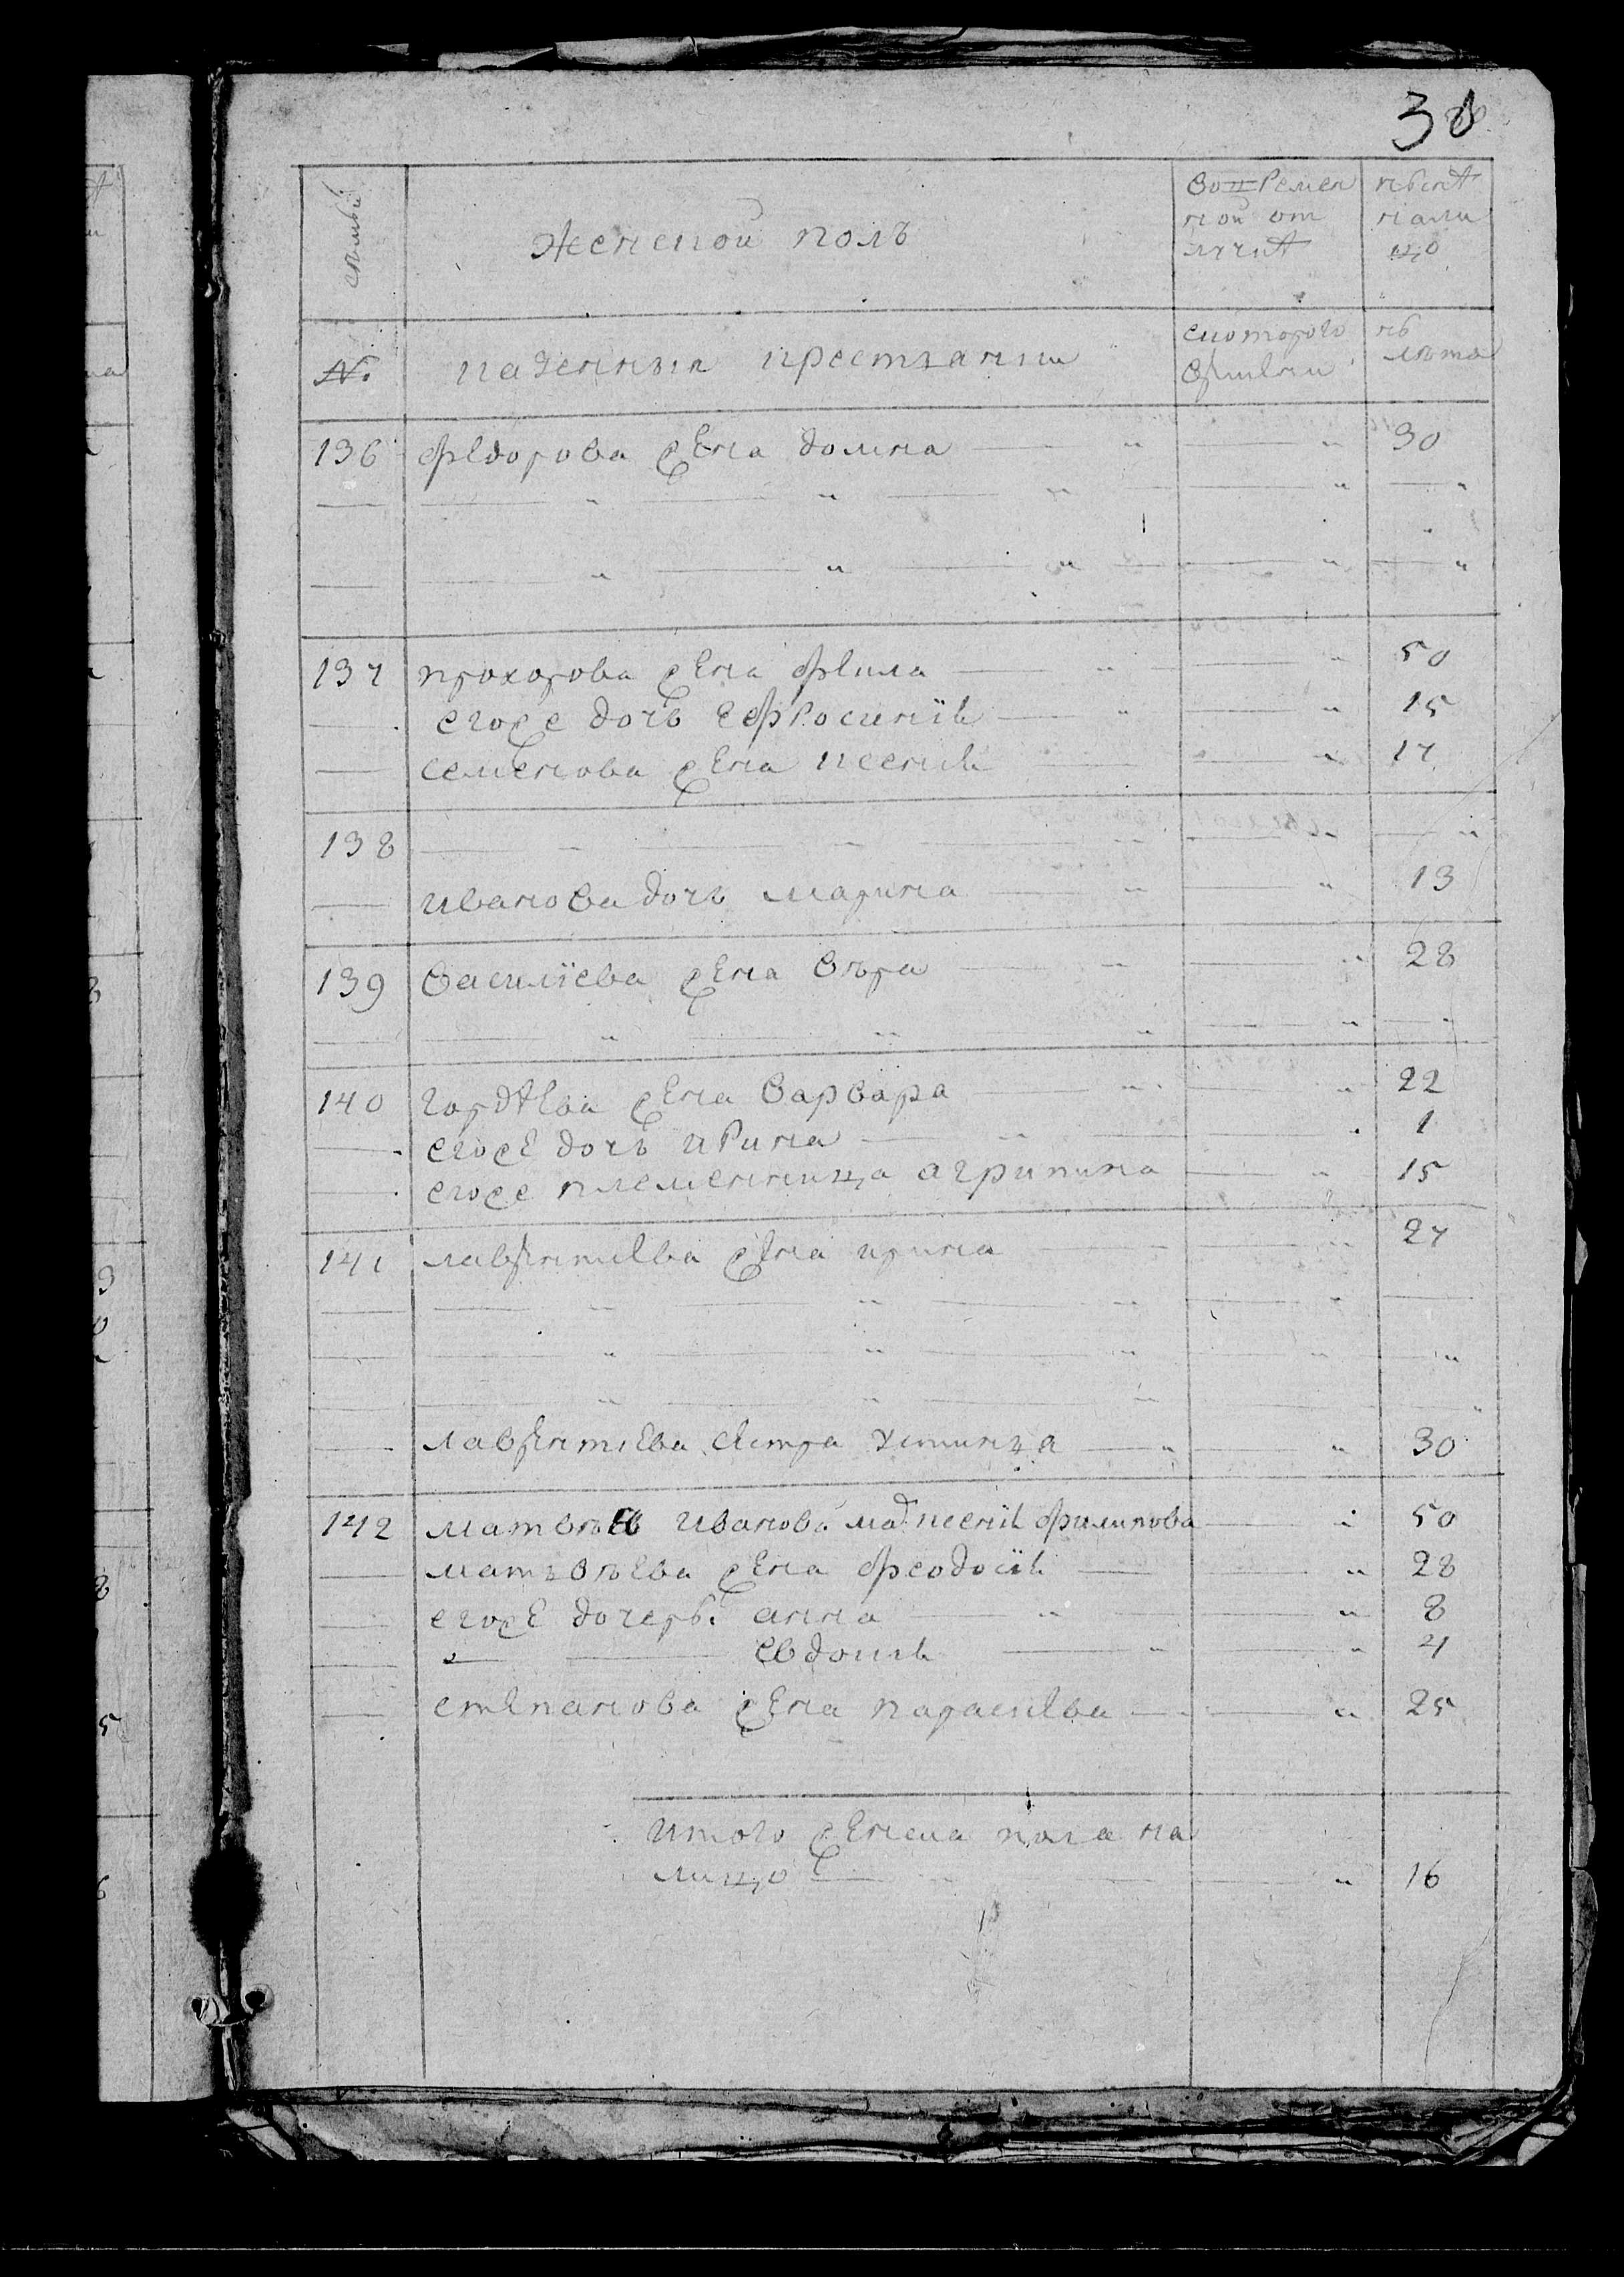 30
семьи
Женской полъ
Во Времен
ной от
лучкѣ
нынѣ
нали
цо
№
казенныя крестьянки
с котораго
времяни
лѣта
136 Федорова жена домна — " — " 30
— — " — " — " — " — "
— — " — " — " — " — "
137 прохорова жена фекла — " — " 50
— егоже дочь Ефросинія — " — " 15
— семенова жена ксенія — " 17
138 — " — " — " — " — "
— иванова дочь марина — " — " 13
139 Василіева жена вѣра — " — " 28
— — " — " — " — " — "
140 гордѣева жена варвара — " — " 22
— егоже дочь ирина — " — 1
— егоже племенница агрипина — " 15
141 лаврентьева жена ирина — " 27
— — " — " — " — " —
— — " — " — " — " — "
— — " — " — " — "
— лаврентьева сестра устинья — " — " 30
142 матвѣева иванова мать ксенія филипова — " 50
— матвѣева жена феодосія — " 28
— егоже дочери: анна — " — " 8
— " — евдокия — " — " 4
— степанова жена парасковья — " 25
Итого женска пола на
лицо — " 16